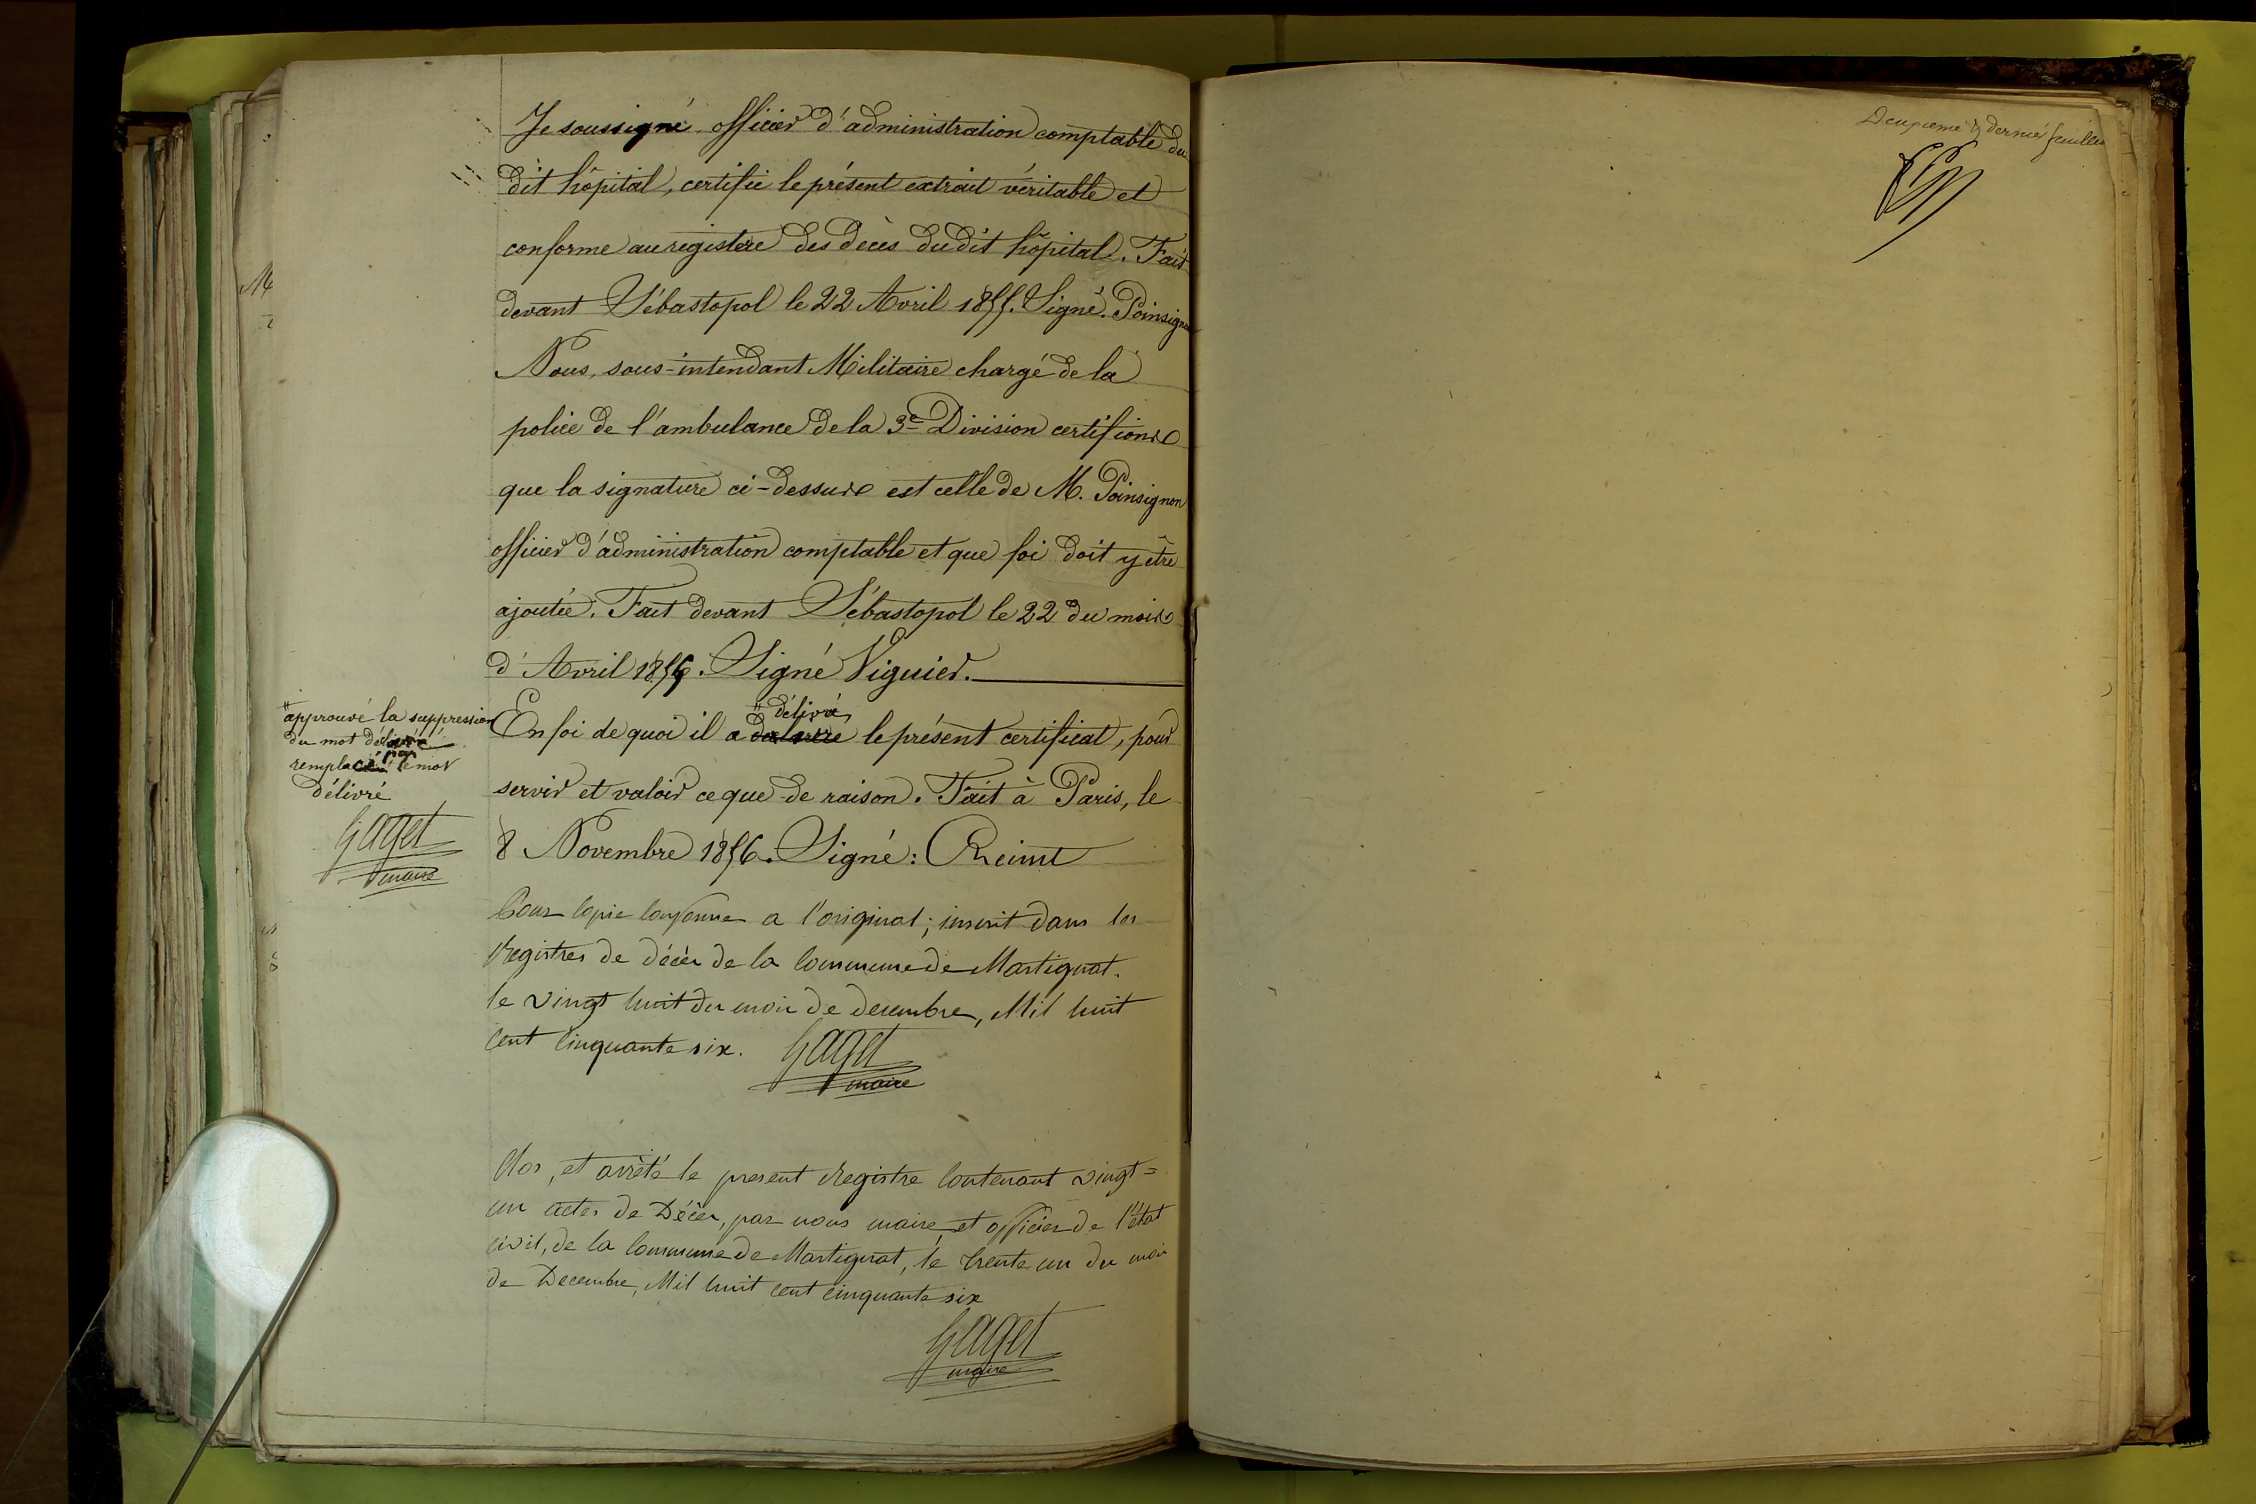 Je soussigné officier d'administration comptable du
dit hôpital, certifie le présent extrait véritable et
conforme au registre des décès du dit hôpital. Fait
devant Sébastopol le 22 Avril 1855. Signé. Poinsignon
Nous, sous-intendant Militaire chargé de la
police de l'ambulance de la 3e Division certifions
que la signature ci-dessus est celle de M. Poinsignon
officier d'administration comptable et que foi doit y être
ajoutée. Fait devant Sébastopol le 22 du mois
d'Avril 1856. Signé Viguier.
# délivré
En foi de quoi il a le présent certificat, pour
servir et valoir ce que de raison. Fait à Paris, le
8 Novembre 1856. Signé:
# approuvé la suppression
du mot
remplacé par le mot
délivré
Gaget
maire
Pour copie conforme a l'original; inscrit dans les
registres de décès de la commune de Martignat.
le vingt huit du mois de decembre, Mil huit
cent cinquante six. Gaget
maire
Clos, et arrêté le present registre contenant vingt=
un actes de Décès, par nous maire, et officier de l'état
civil, de la commune de Martignat, le trente un du mois
de Decembre, Mil huit cent cinquante six
Gaget
maire
Deuxieme & dernié feuillet